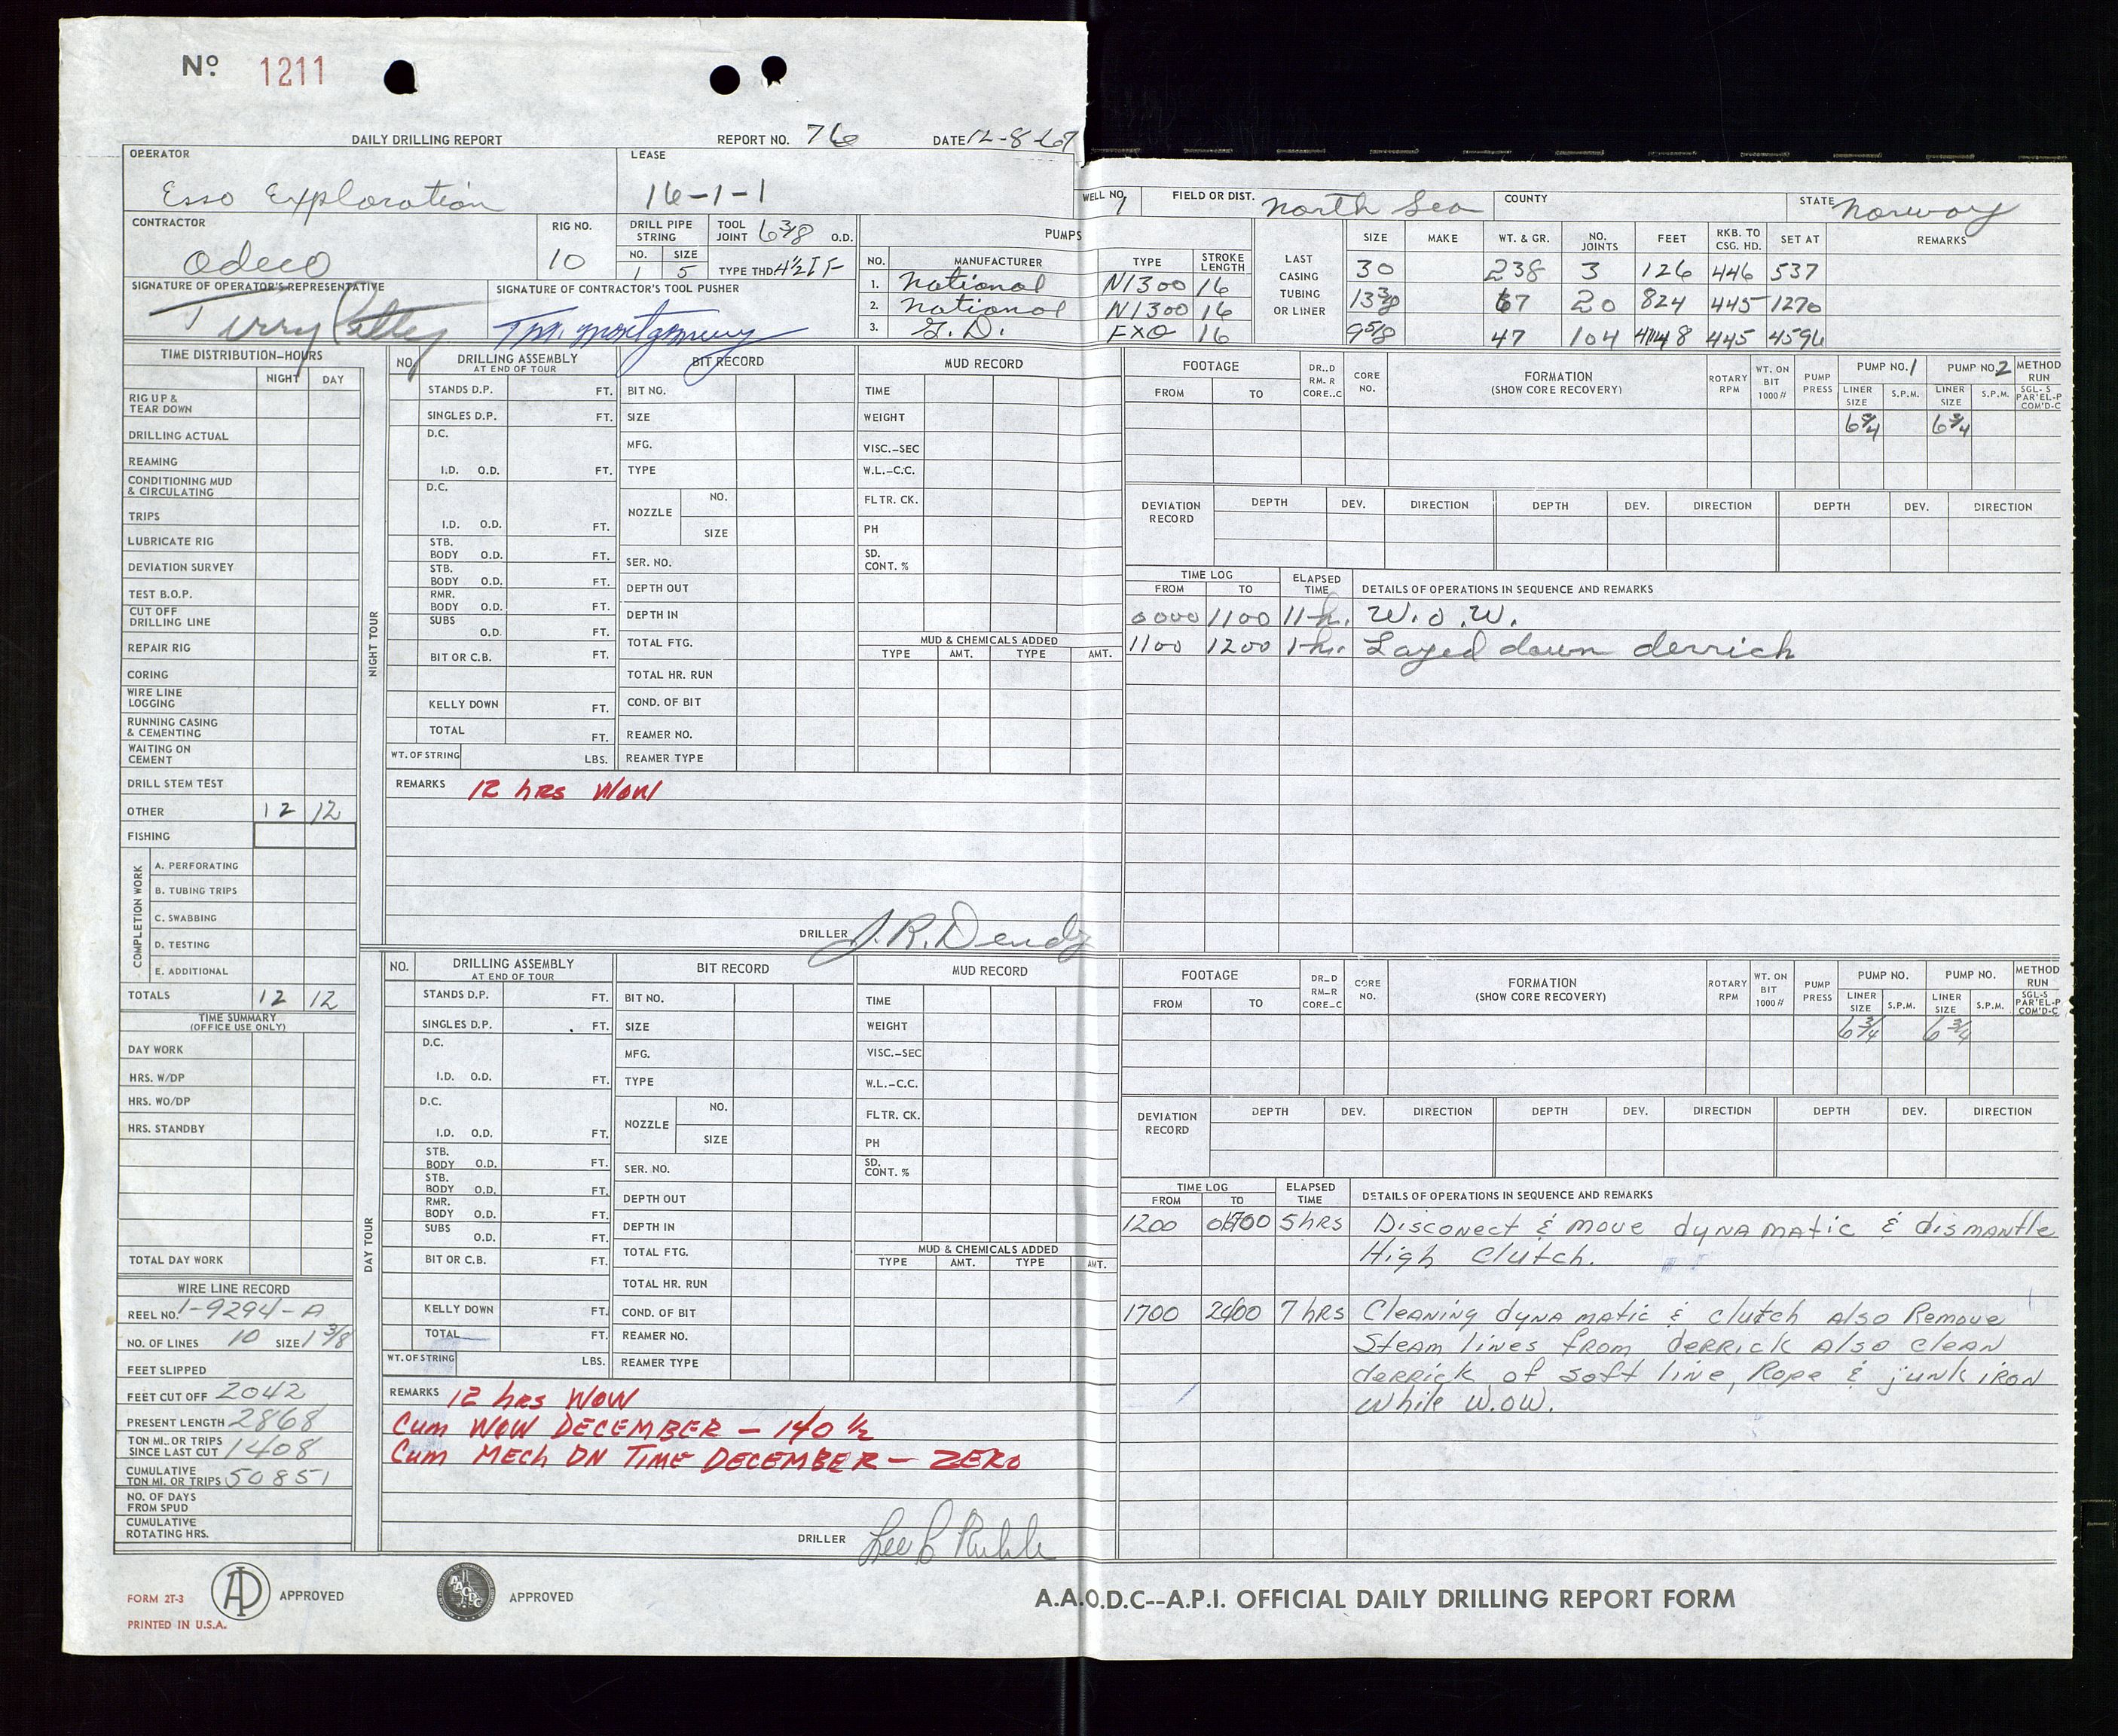 Nº 1211
DAILY DRILLING REPORT REPORT NO. 76 DATE 12-8-67
OPERATOR LEASE
Esso Exploration 16-1-1
WELL NO. 1 FIELD OR DIST. North Sea COUNTY STATE Norway
CONTRACTOR RIG NO. DRILL PIPE STRING TOOL JOINT 6 3/8 O.D. PUMPS
Odeco 10 NO. SIZE TYPE THD. 4½ I F
1 5
NO. MANUFACTURER TYPE STROKE LENGTH
1. National N1300 16
2. National N1300 16
3. G.D. FXO 16
LAST CASING TUBING OR LINER
SIZE MAKE WT. & GR. NO. JOINTS FEET RKB. TO CSG. HD. SET AT REMARKS
30 238 3 126 446 537
13 3/8 67 20 824 445 1270
9 5/8 47 104 4148 445 4596
SIGNATURE OF OPERATOR'S REPRESENTATIVE SIGNATURE OF CONTRACTOR'S TOOL PUSHER
Terry T.M. Montgomery
TIME DISTRIBUTION-HOURS
NIGHT DAY
RIG UP & TEAR DOWN
DRILLING ACTUAL
REAMING
CONDITIONING MUD & CIRCULATING
TRIPS
LUBRICATE RIG
DEVIATION SURVEY
TEST B.O.P.
CUT OFF DRILLING LINE
REPAIR RIG
CORING
WIRE LINE LOGGING
RUNNING CASING & CEMENTING
WAITING ON CEMENT
DRILL STEM TEST
OTHER 12 12
FISHING
COMPLETION WORK
A. PERFORATING
B. TUBING TRIPS
C. SWABBING
D. TESTING
E. ADDITIONAL
TOTALS 12 12
TIME SUMMARY
(OFFICE USE ONLY)
DAY WORK
HRS. W/DP
HRS. WO/DP
HRS. STANDBY
TOTAL DAY WORK
WIRE LINE RECORD
REEL NO. 1-9294-A
NO. OF LINES 10 SIZE 1 3/8
FEET SLIPPED
FEET CUT OFF 2042
PRESENT LENGTH 2868
TON MI. OR TRIPS SINCE LAST CUT 1408
CUMULATIVE TON MI. OR TRIPS 50851
NO. OF DAYS FROM SPUD
CUMULATIVE ROTATING HRS.
NIGHT TOUR
NO. DRILLING ASSEMBLY AT END OF TOUR BIT RECORD MUD RECORD
STANDS D.P. FT. BIT NO. TIME
SINGLES D.P. FT. SIZE WEIGHT
D.C. MFG. VISC.-SEC
I.D. O.D. FT. TYPE W.L.-C.C.
D.C. NOZZLE NO. FLTR. CK.
I.D. O.D. FT. SIZE PH
STB. BODY O.D. FT. SER. NO. SD. CONT. %
STB. BODY O.D. FT. DEPTH OUT
RMR. BODY O.D. FT. DEPTH IN
SUBS O.D. FT. TOTAL FTG. MUD & CHEMICALS ADDED
BIT OR C.B. FT. TYPE AMT. TYPE AMT.
TOTAL HR. RUN
KELLY DOWN FT. COND. OF BIT
TOTAL FT. REAMER NO.
WT. OF STRING LBS. REAMER TYPE
REMARKS 12 hrs WOW
DRILLER J.R. Dendy
FOOTAGE DR._D RM._R CORE._C CORE NO. FORMATION (SHOW CORE RECOVERY) ROTARY RPM WT. ON BIT 1000# PUMP PRESS PUMP NO. 1 PUMP NO. 2 METHOD RUN
FROM TO LINER SIZE S.P.M. LINER SIZE S.P.M. SGL-S PAR'EL-P COM'D-C
6 3/4 6 3/4
DEVIATION RECORD DEPTH DEV. DIRECTION DEPTH DEV. DIRECTION DEPTH DEV. DIRECTION
TIME LOG ELAPSED TIME DETAILS OF OPERATIONS IN SEQUENCE AND REMARKS
FROM TO
0000 1100 11-h. W.O.W.
1100 1200 1-hr. Layed down derrick
DAY TOUR
NO. DRILLING ASSEMBLY AT END OF TOUR BIT RECORD MUD RECORD
STANDS D.P. FT. BIT NO. TIME
SINGLES D.P. FT. SIZE WEIGHT
D.C. MFG. VISC.-SEC
I.D. O.D. FT. TYPE W.L.-C.C.
D.C. NOZZLE NO. FLTR. CK.
I.D. O.D. FT. SIZE PH
STB. BODY O.D. FT. SER. NO. SD. CONT. %
STB. BODY O.D. FT. DEPTH OUT
RMR. BODY O.D. FT. DEPTH IN
SUBS O.D. FT. TOTAL FTG. MUD & CHEMICALS ADDED
BIT OR C.B. FT. TYPE AMT. TYPE AMT.
TOTAL HR. RUN
KELLY DOWN FT. COND. OF BIT
TOTAL FT. REAMER NO.
WT. OF STRING LBS. REAMER TYPE
REMARKS 12 hrs WOW
Cum WOW DECEMBER - 140 ½
Cum MECh DN TIME DECEMBER - ZERO
DRILLER Lee
FOOTAGE DR._D RM._R CORE_C CORE NO. FORMATION (SHOW CORE RECOVERY) ROTARY RPM WT. ON BIT 1000# PUMP PRESS PUMP NO. PUMP NO. METHOD RUN
FROM TO LINER SIZE S.P.M. LINER SIZE S.P.M. SGL-S PAR'EL-P COM'D-C
6 3/4 6 3/4
DEVIATION RECORD DEPTH DEV. DIRECTION DEPTH DEV. DIRECTION DEPTH DEV. DIRECTION
TIME LOG ELAPSED TIME DETAILS OF OPERATIONS IN SEQUENCE AND REMARKS
FROM TO
1200 1700 5 hRS Disconect & move dynamatic & dismantle
High Clutch.
1700 2400 7 hRS Cleaning dynamatic & clutch also Remove
Steam lines from derrick also clean
derrick of soft line, Rope & junk iron
while W.O.W.
FORM 2T-3 APPROVED APPROVED
PRINTED IN U.S.A.
A.A.O.D.C--A.P.I. OFFICIAL DAILY DRILLING REPORT FORM